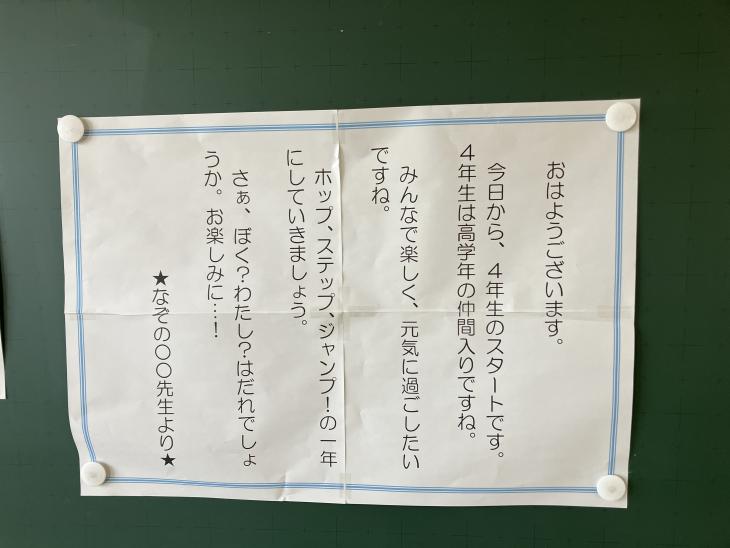 おはようございます。
今日から、４年生のスタートです。
４年生は高学年の仲間入りですね。
みんなで楽しく、元気に過ごしたい
ですね。
ホップ、ステップ、ジャンプ！の一年
にしていきましょう。
さぁ、ぼく？わたし？はだれでしょ
うか。お楽しみに…！
★なぞの〇〇先生より★